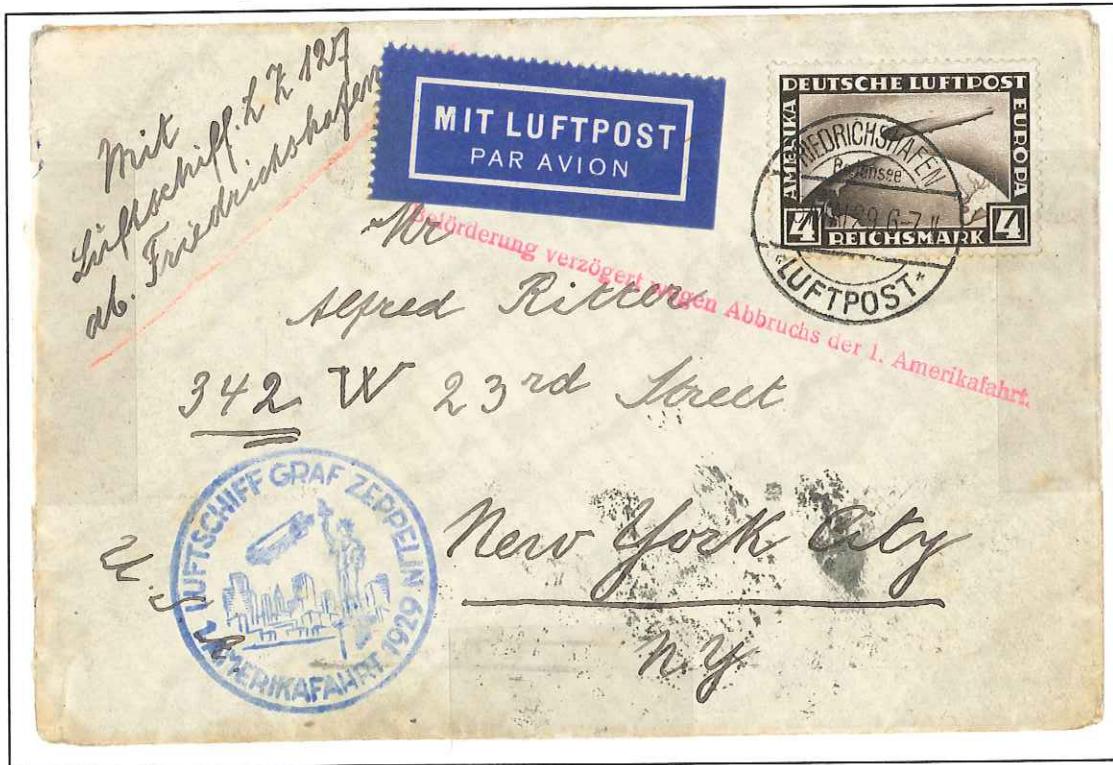 Mit
Luftschiff. L Z 127
ab. Friedrichshafen
MIT LUFTPOST
PAR AVION
DEUTSCHE LUFTPOST
AMERIKA
EUROPA
4 REICHSMARK 4
FRIEDRICHSHAFEN
Bodensee
29. 6-7
*LUFTPOST*
Beförderung verzögert wegen Abbruchs der 1. Amerikafahrt.
Mr
Alfred Ritter
342 W 23rd Street
New York City
N.Y
U.S.A.
LUFTSCHIFF GRAF ZEPPELIN
1. AMERIKAFAHRT 1929